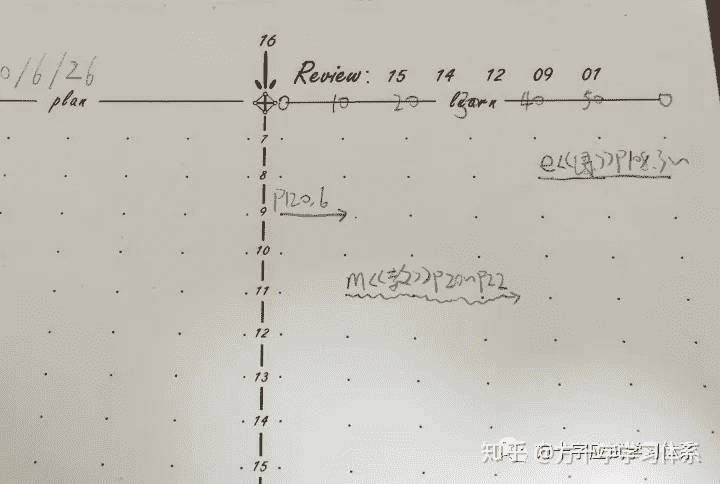 16
0/6/26
Review: 15 14 12 09 01
plan
0 10 20 learn 40 50 0
7
8
e《《》》P108.3~
9
P120.6
10
m《《数》》P20~P22
11
12
13
14
15
知乎 @十字应试学习体系